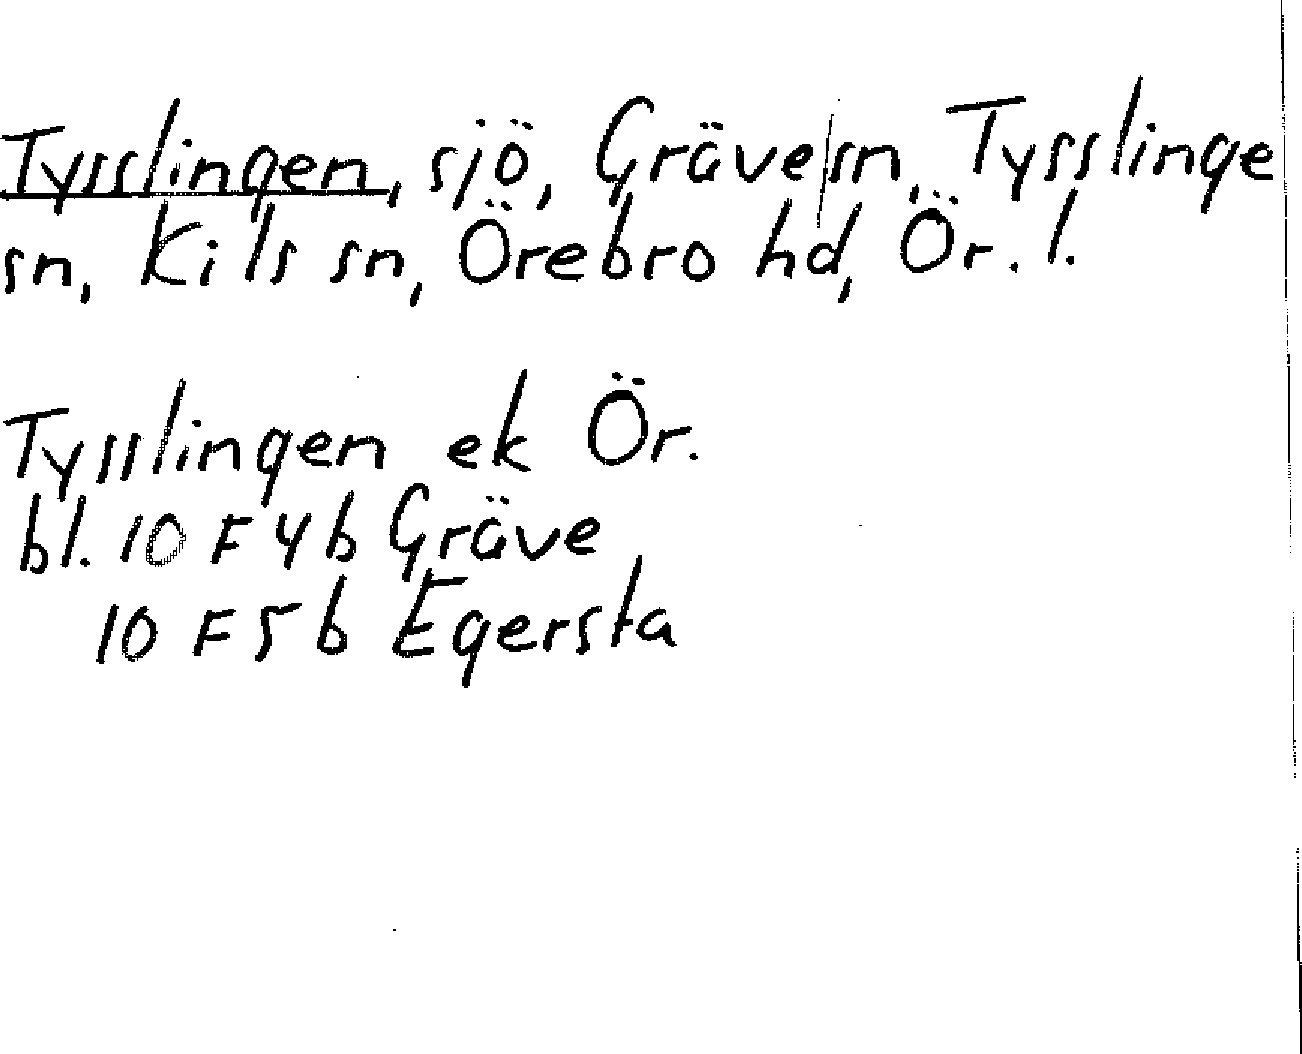 Tysslingen, sjö, Gräve sn, Tysslinge
sn, Kils sn, Örebro hd, Ör. l.
Tysslingen ek Ör.
bl. 10 F 4 b Gräve
10 F 5 b Egersta